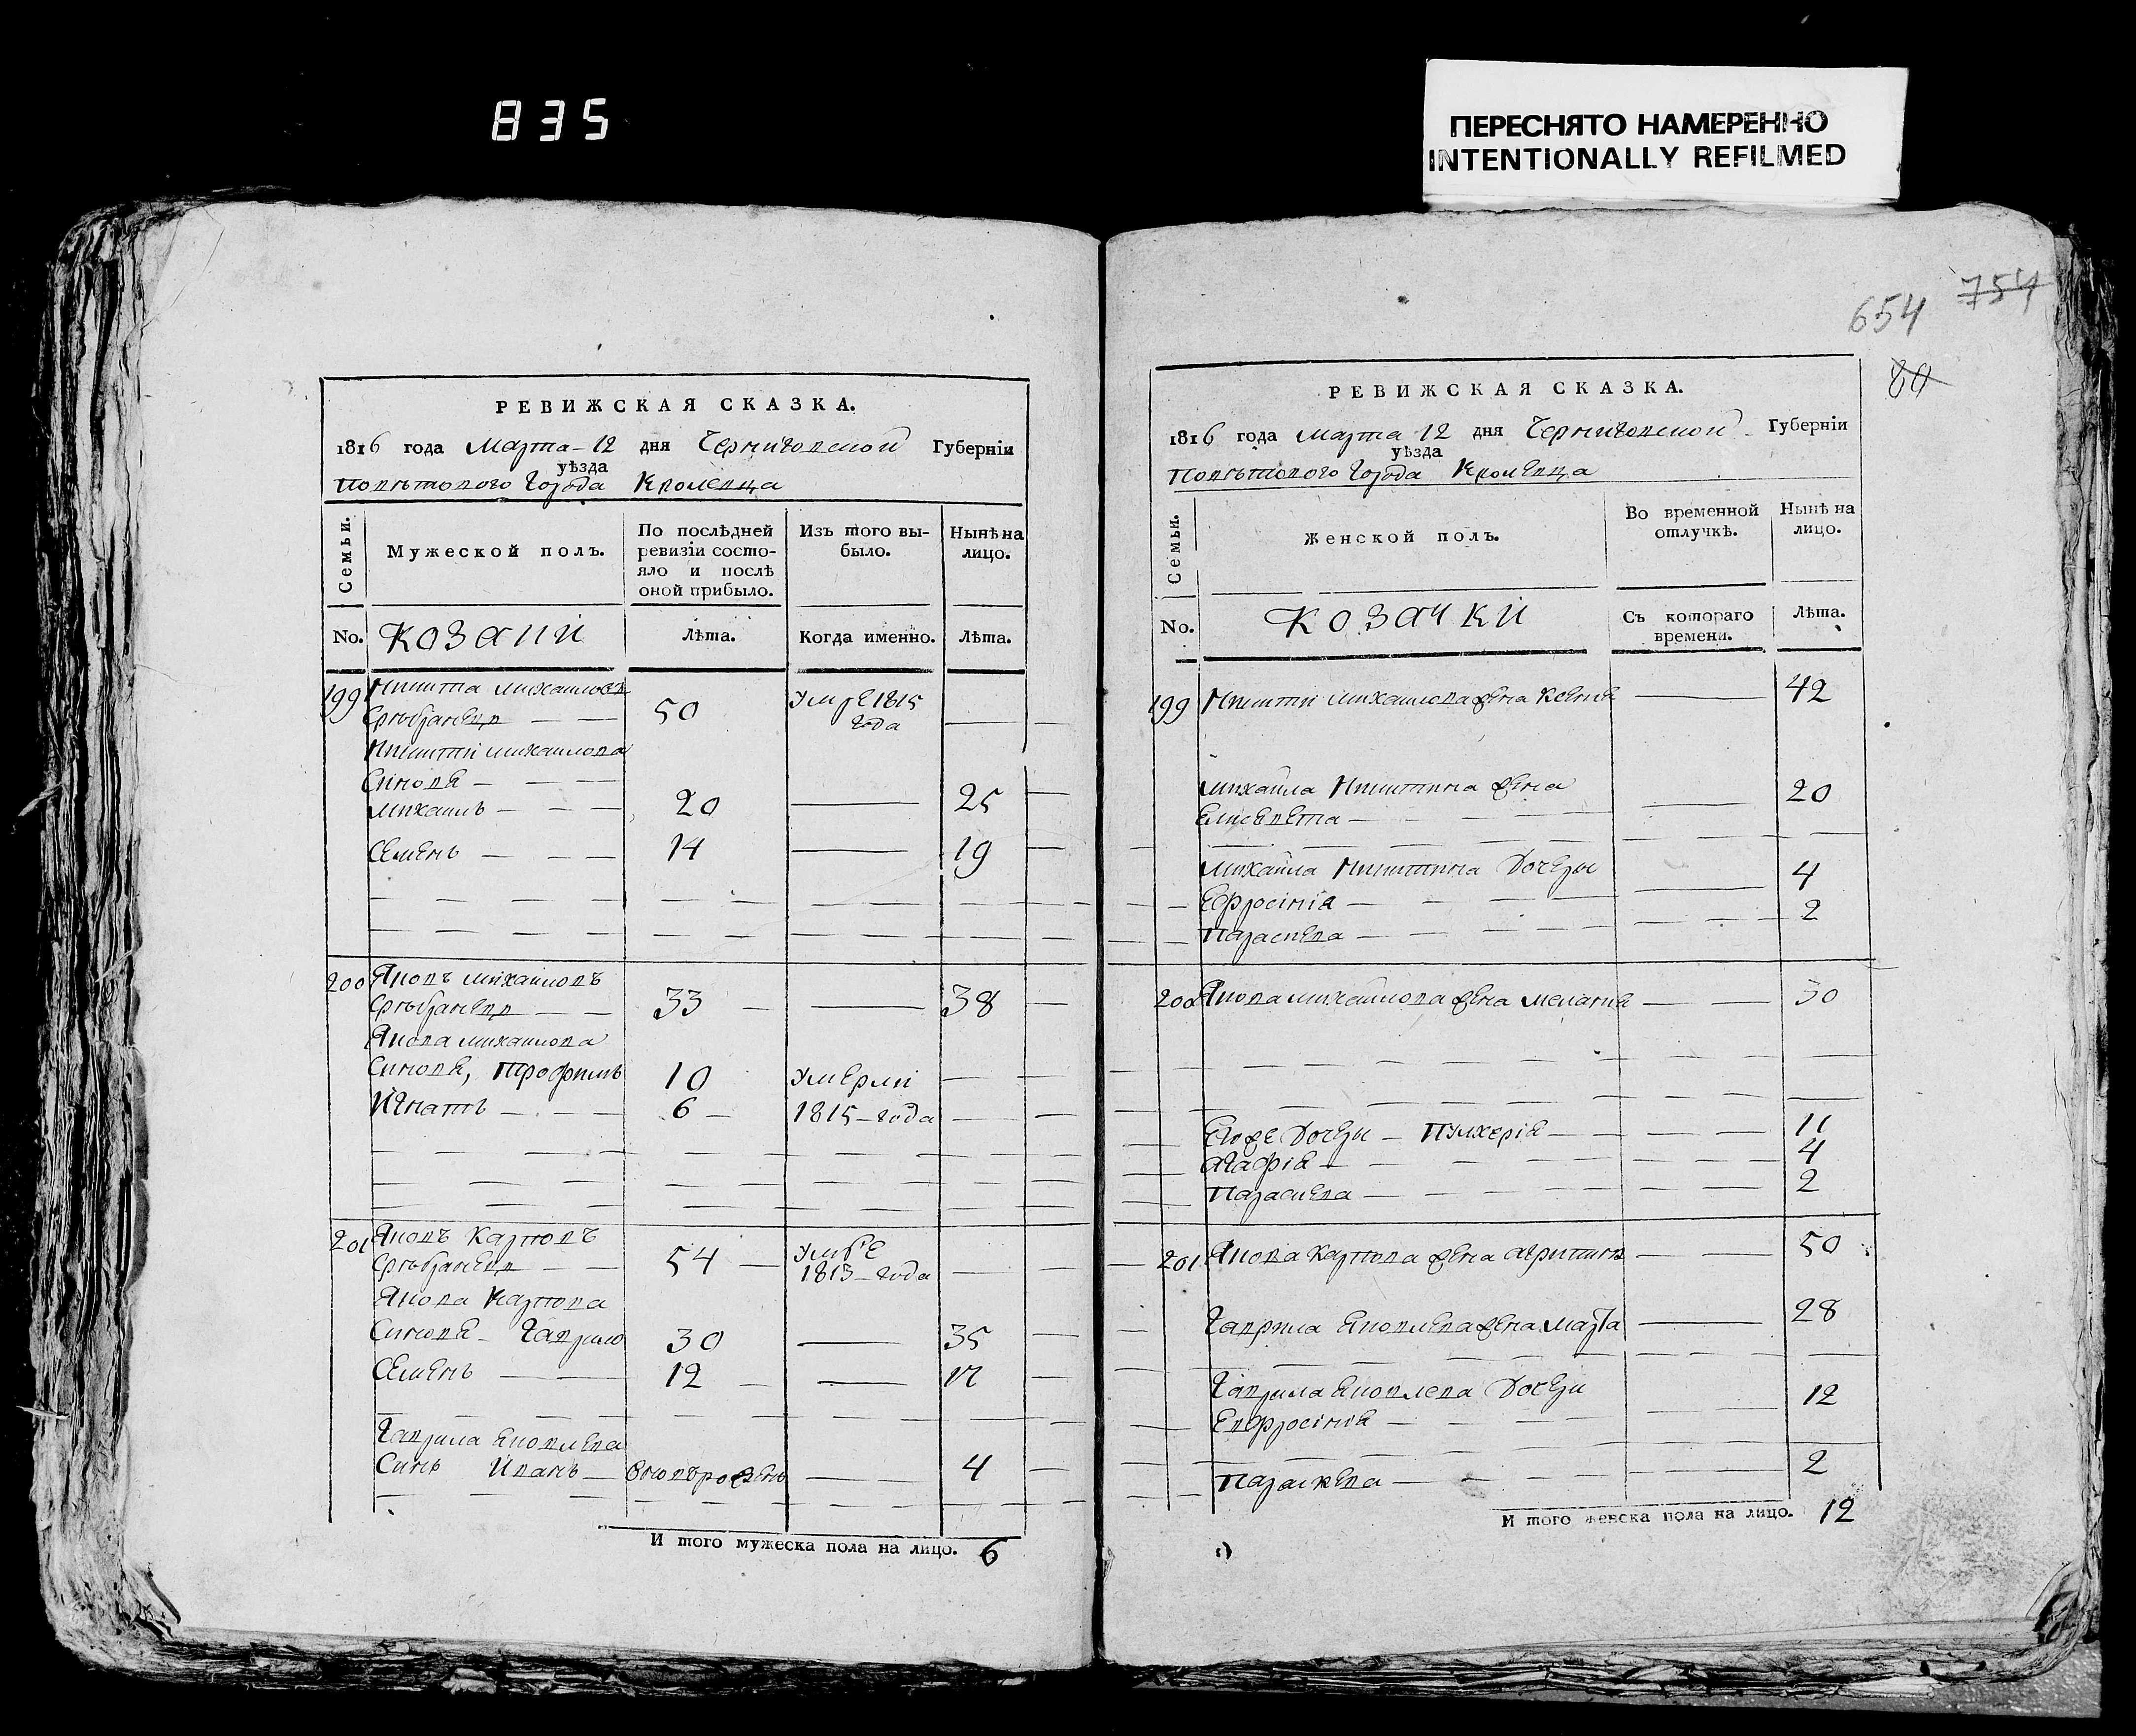 835
ПЕРЕСНЯТО НАМЕРЕННО
INTENTIONALLY REFILMED
654 754
80
РЕВИЖСКАЯ СКАЗКА.
1816 года Марта 12 дня Черниговской Губерніи
уѣзда
Повѣтового Города Кролевца
Семьи.
Мужеской полъ.
По послѣдней ревизіи состо-
яло и послѣ
оной прибыло.
Изъ того вы-
было.
Нынѣ на
лицо.
No. Козаки Лѣта. Когда именно. Лѣта.
199 Никита Михаиловъ 50 Умре 1815
года
Никити Михаилова
Синовя
Михаилъ 20 25
Семенъ 14 19
200 Яковъ Михаиловъ
33 38
Якова Михаилова
Синовя, Трофимъ 10 Умерли
Игнатъ 6 1815 года
201 Яковъ Карповъ
54 Умре
1813 года
Якова Карпова
Синовя Гаврило 30 35
Семенъ 12 17
Гаврила Яковлева
Синъ Иванъ вновърожденъ 4
И того мужеска пола на лицо. 6
РЕВИЖСКАЯ СКАЗКА.
1816 года Марта 12 дня Черниговской Губерніи
уѣзда
Повѣтового Города Кролевца
Семьи.
Женской полъ.
Во временной
отлучкѣ.
Нынѣ на
лицо.
No. Козачки
Съ котораго
времени.
Лѣта.
199 Никити Михаилова жена Ксенія 42
Михаила Никитина жена
Елисевета 20
Михаила Никитина Дочери
Ефросінія 4
Параскева 2
200 Якова Михайлова жена Меланія 30
Егоже Дочери Пулхерія 11
Агафія 4
Параскева 2
201 Якова Карпова жена Агрипина 50
Гаврила Яковлева жена Марфа 28
Гаврила Яковлева Дочери
Евфросінія 12
Параскева 2
И того женска пола на лицо. 12